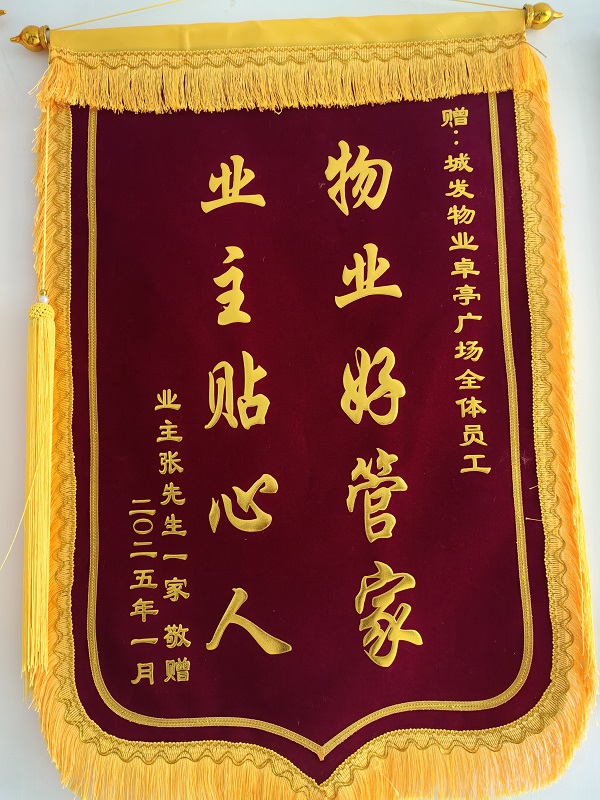 赠:城发物业卓亭广场全体员工
物业好管家
业主贴心人
业主张先生一家 敬赠
二〇二五年一月